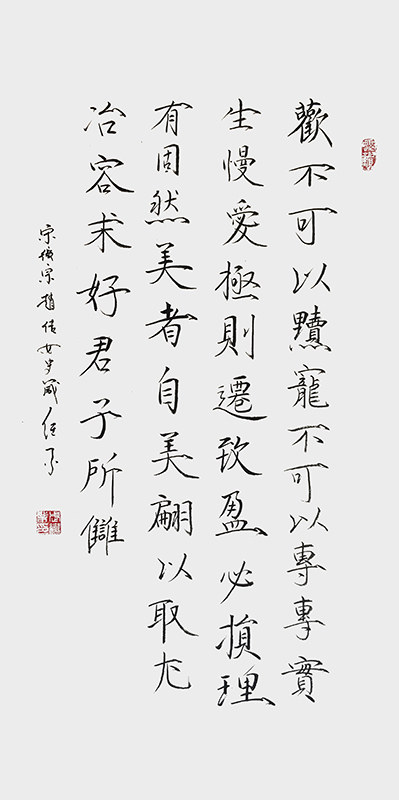 歡不可以黷寵不可以專專實
生慢愛極則遷致盈必損理
有固然美者自美翩以取尤
冶容求好君子所讎
宋徽宗趙佶女史箴